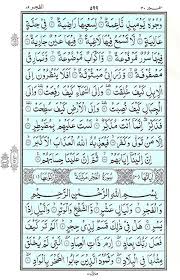 ٥٩٩
وُجُوهٌ يَوْمَئِذٍ نَاعِمَةٌ لِسَعْيِهَا رَاضِيَةٌ فِي جَنَّةٍ
عَالِيَةٍ لَا تَسْمَعُ فِيهَا لَاغِيَةً فِيهَا عَيْنٌ جَارِيَةٌ
فِيهَا سُرُرٌ مَرْفُوعَةٌ وَأَكْوَابٌ مَوْضُوعَةٌ وَنَمَارِقُ
مَصْفُوفَةٌ وَزَرَابِيُّ مَبْثُوثَةٌ أَفَلَا يَنْظُرُونَ إِلَى
الْإِبِلِ كَيْفَ خُلِقَتْ وَإِلَى السَّمَاءِ كَيْفَ رُفِعَتْ وَإِلَى
الْجِبَالِ كَيْفَ نُصِبَتْ وَإِلَى الْأَرْضِ كَيْفَ سُطِحَتْ
فَذَكِّرْ إِنَّمَا أَنْتَ مُذَكِّرٌ لَسْتَ عَلَيْهِمْ بِمُصَيْطِرٍ إِلَّا
مَنْ تَوَلَّى وَكَفَرَ فَيُعَذِّبُهُ اللَّهُ الْعَذَابَ الْأَكْبَرَ إِنَّ
إِلَيْنَا إِيَابَهُمْ ثُمَّ إِنَّ عَلَيْنَا حِسَابَهُمْ
سُورَةُ الْفَجْرِ مَكِّيَّةٌ
بِسْمِ اللَّهِ الرَّحْمَنِ الرَّحِيمِ
وَالْفَجْرِ وَلَيَالٍ عَشْرٍ وَالشَّفْعِ وَالْوَتْرِ وَاللَّيْلِ إِذَا
يَسْرِ هَلْ فِي ذَلِكَ قَسَمٌ لِذِي حِجْرٍ أَلَمْ تَرَ كَيْفَ
فَعَلَ رَبُّكَ بِعَادٍ إِرَمَ ذَاتِ الْعِمَادِ الَّتِي لَمْ يُخْلَقْ